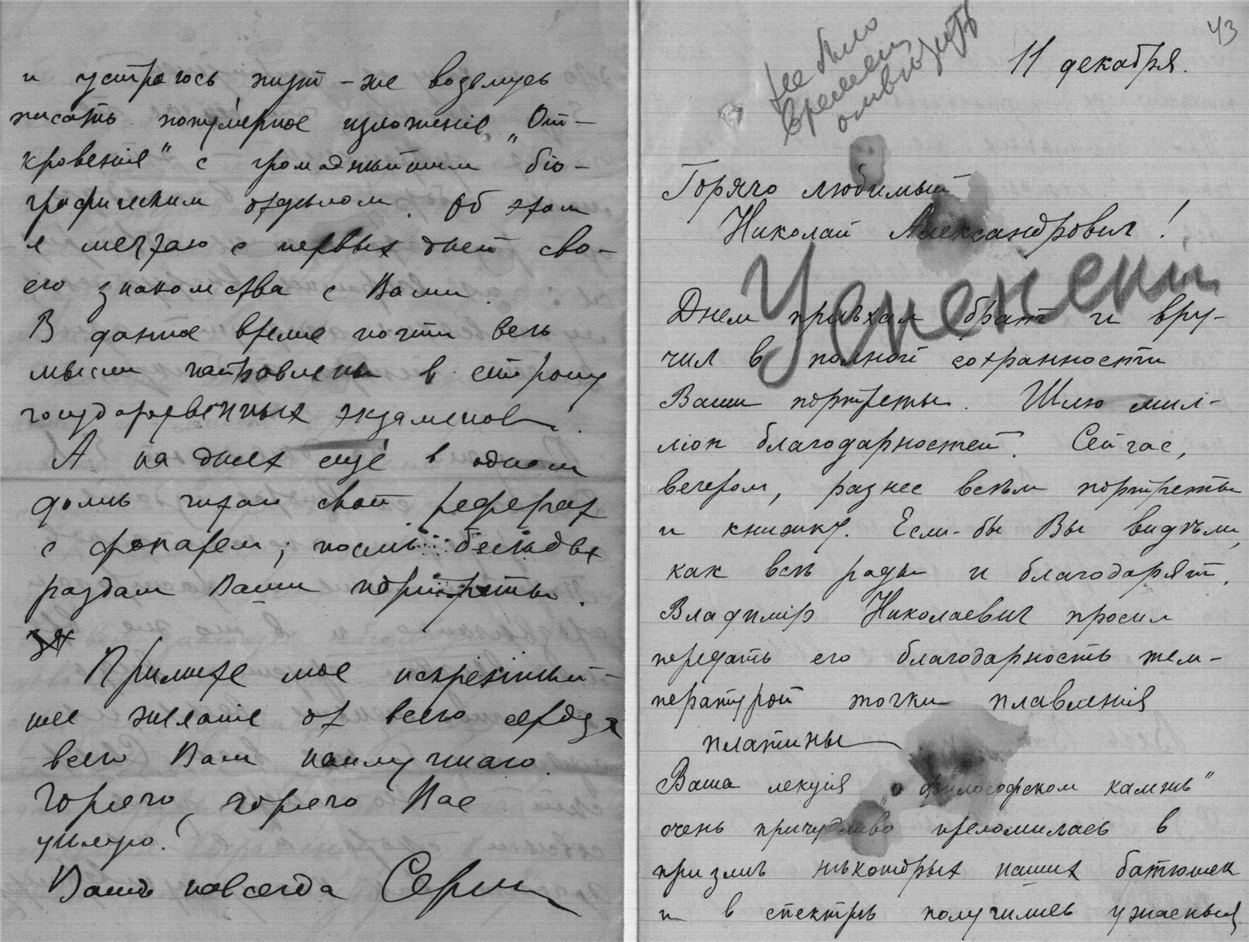 и устроюсь жит-же возьмусь
писать популярное изложеніе „От-
кровенія" с громаднѣйшим біо-
графическим отдѣлом. Об этом
я мечтаю с первых дней сво-
его знакомства с Вами.
В данное время почти весь
мысли направлены в сторону
государственных экзаменов.
А на днях ещё в одном
домѣ читаю свой реферат
с фонарем; послѣ бесѣды
раздам Ваши портреты.
Примите мое искреннѣй-
шее желаніе от всего сердца
всего Вам наилучшаго.
Горячо, горячо Вас
цѣлую!
Вашъ навсегда Серги
43
не было
времени
11 декабря.
Горячо любимый
Николай Александрович!
Днем пріѣхал брат и вру-
чил в полной сохранности
Ваши портреты. Шлю мил-
ліон благодарностей. Сейчас,
вечером, разнес всѣм портреты
и книжку. Если-бы Вы видѣли,
как всѣ рады и благодарят.
Владимір Николаевич просил
передать его благодарность тем-
пературой точки плавленія
платины
Ваша лекція „о философском камнѣ"
очень причудливо преломилась в
призмѣ нѣкоторых наших батюшек
и в спектрѣ получились ужасныя